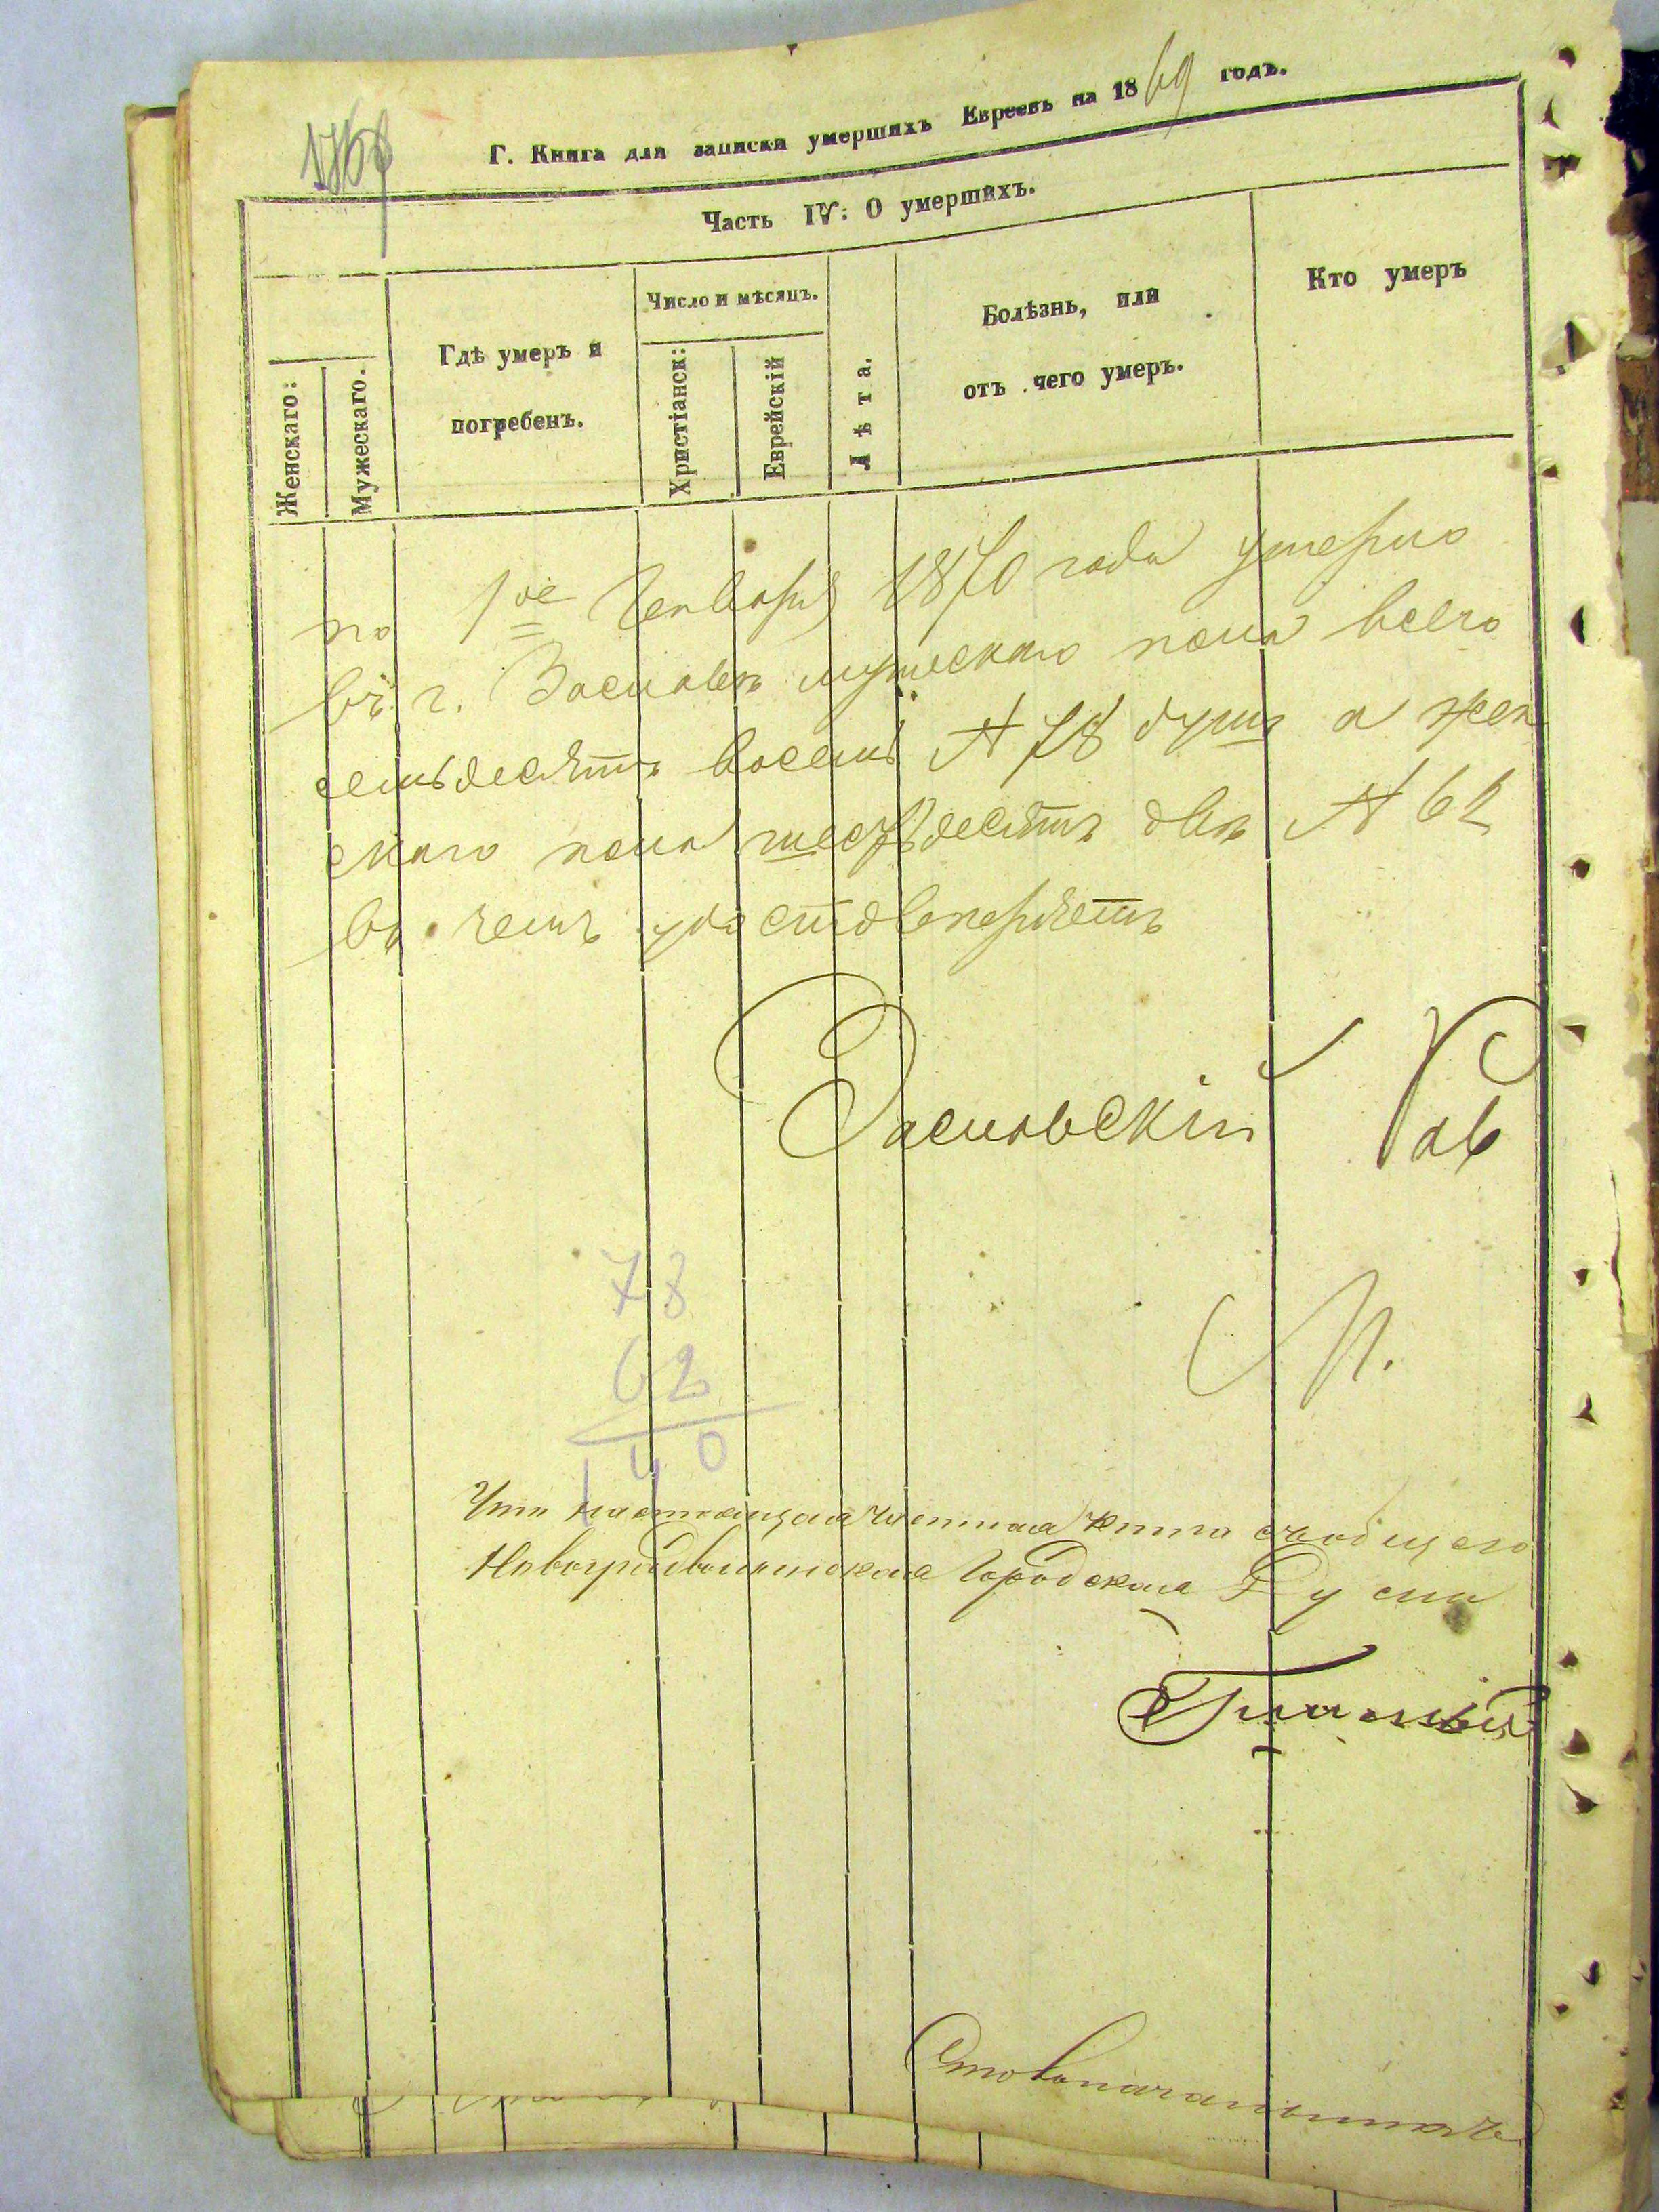 Г. Книга для записки умершихъ Евреевъ на 1869 годъ.
Часть IV: О умершихъ.
Женскаго:
Мужескаго.
Гдѣ умеръ и
погребенъ.
Число и мѣсяцъ.
Христіанск:
Еврейскій
Лѣта.
Болѣзнь, или
отъ чего умеръ.
Кто умеръ
по 1ое Генваря 1870 года умерло
въ г. Заславѣ мужескаго пола всего
семьдесятъ восемь № 78 душъ а жен
скаго пола шестьдесятъ двѣ № 62
въ чемъ удостовѣряетъ
Заславскій Рав
М.
78
62
140
Что настоящая книга
Новоградволынская Городская Дума
Столоначальникъ